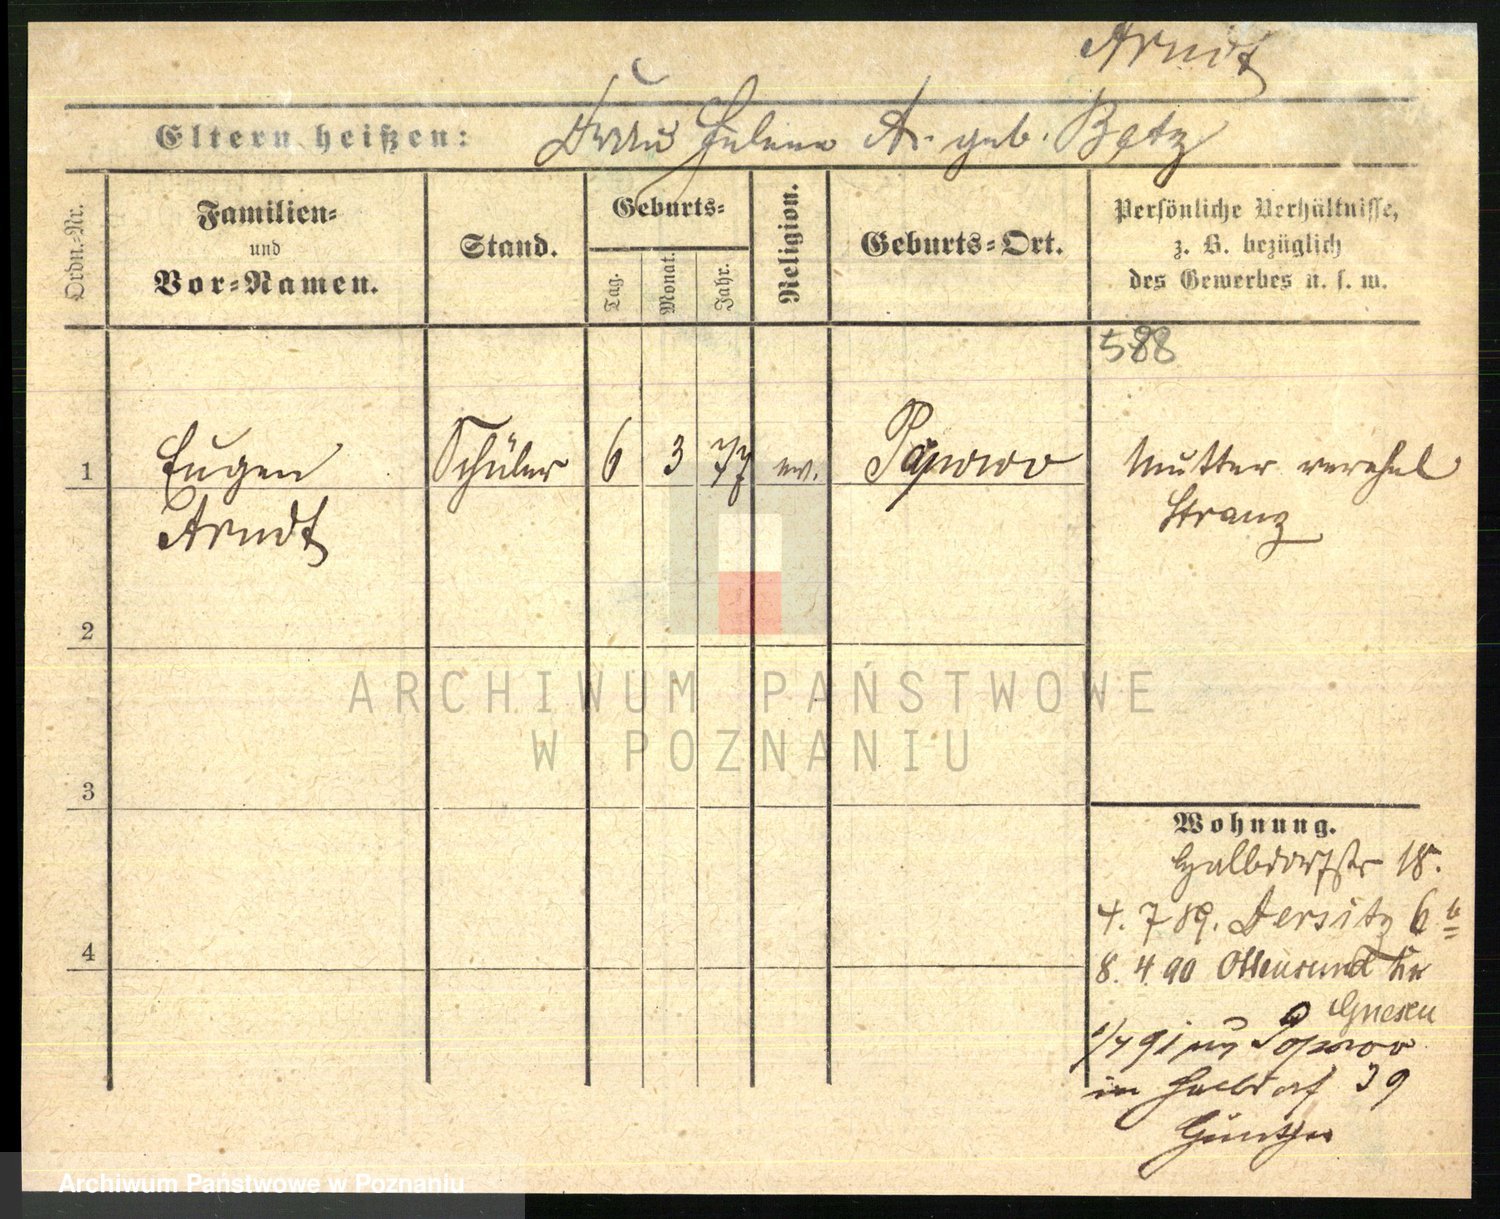 Arndt
Eltern heißen: Frau Helene A. geb. Betz
Ordn.-Nr.
Familien-
und
Vor-Namen.
Stand.
Geburts-
Tag.
Monat.
Jahr.
Religion.
Geburts-Ort.
Persönliche Verhältnisse,
z. B. bezüglich
des Gewerbes u. s. w.
588
1 Eugen Schüler 6 3 77 ev. Papowo Mutter verehel
Arndt Stranz
2
3
4
ARCHIWUM PAŃSTWOWE
W POZNANIU
Wohnung.
Halbdorfstr 18.
4. 7 89. Jersitz 6 b
8. 4 90 Ottensund Kr
Gnesen
1/7 91 Popowo
in Halbdorf 39
Archiwum Państwowe w Poznaniu